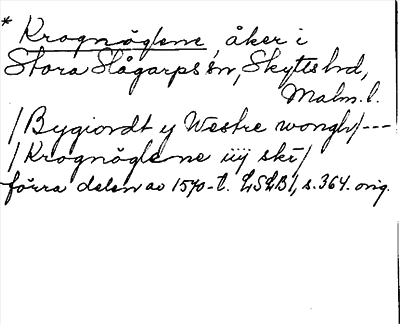 * Krognöglene, åker i
Stora Slågarps sn, Skytts hd,
Malm. l.
/Bygiordt y Westre wongh/---
/Krognöglene iiij skr/
förra delen av 1570-t. LSLB1, s. 364. orig.